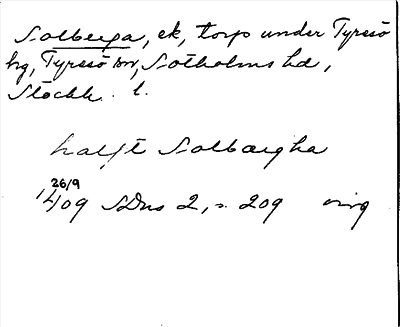 Solberga, ek, torp under Tyresö
hg, Tyresö sn, Sotholms hd,
Stockh. l.
halft Solbärgha
26/9
1409 SDns 2, s. 209 orig